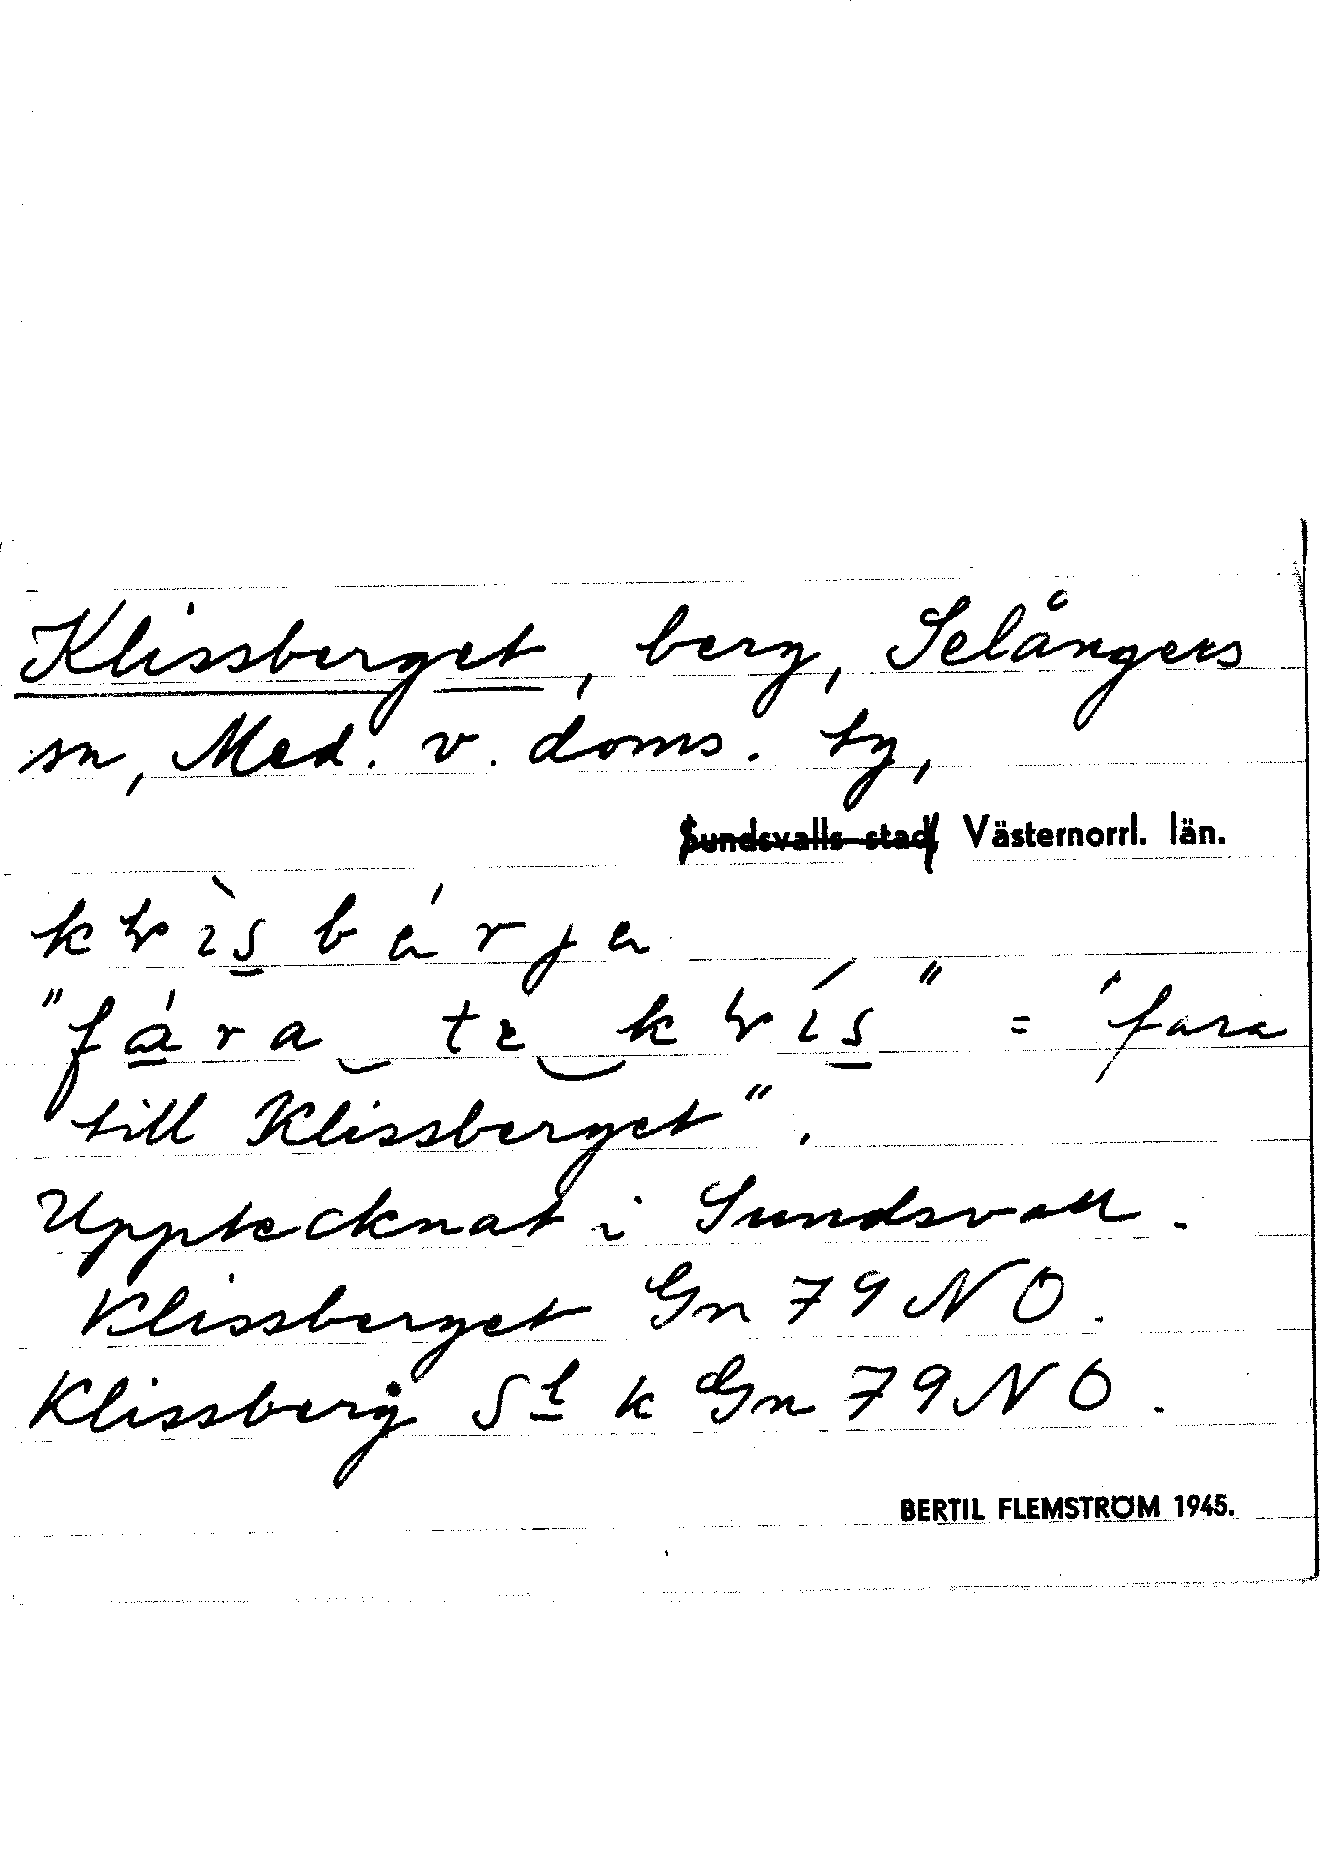 Klissberget, berg, Selångers
sn, Med. v. doms. tg,
Sundsvalls stad, Västernorrl. län.
"fára
" = 'fara
till Klissberget".
Upptecknat i Sundsvall.
Klissberget Gn 79 NO.
Klissberg St k Gn 79 NO.
BERTIL FLEMSTRÖM 1945.